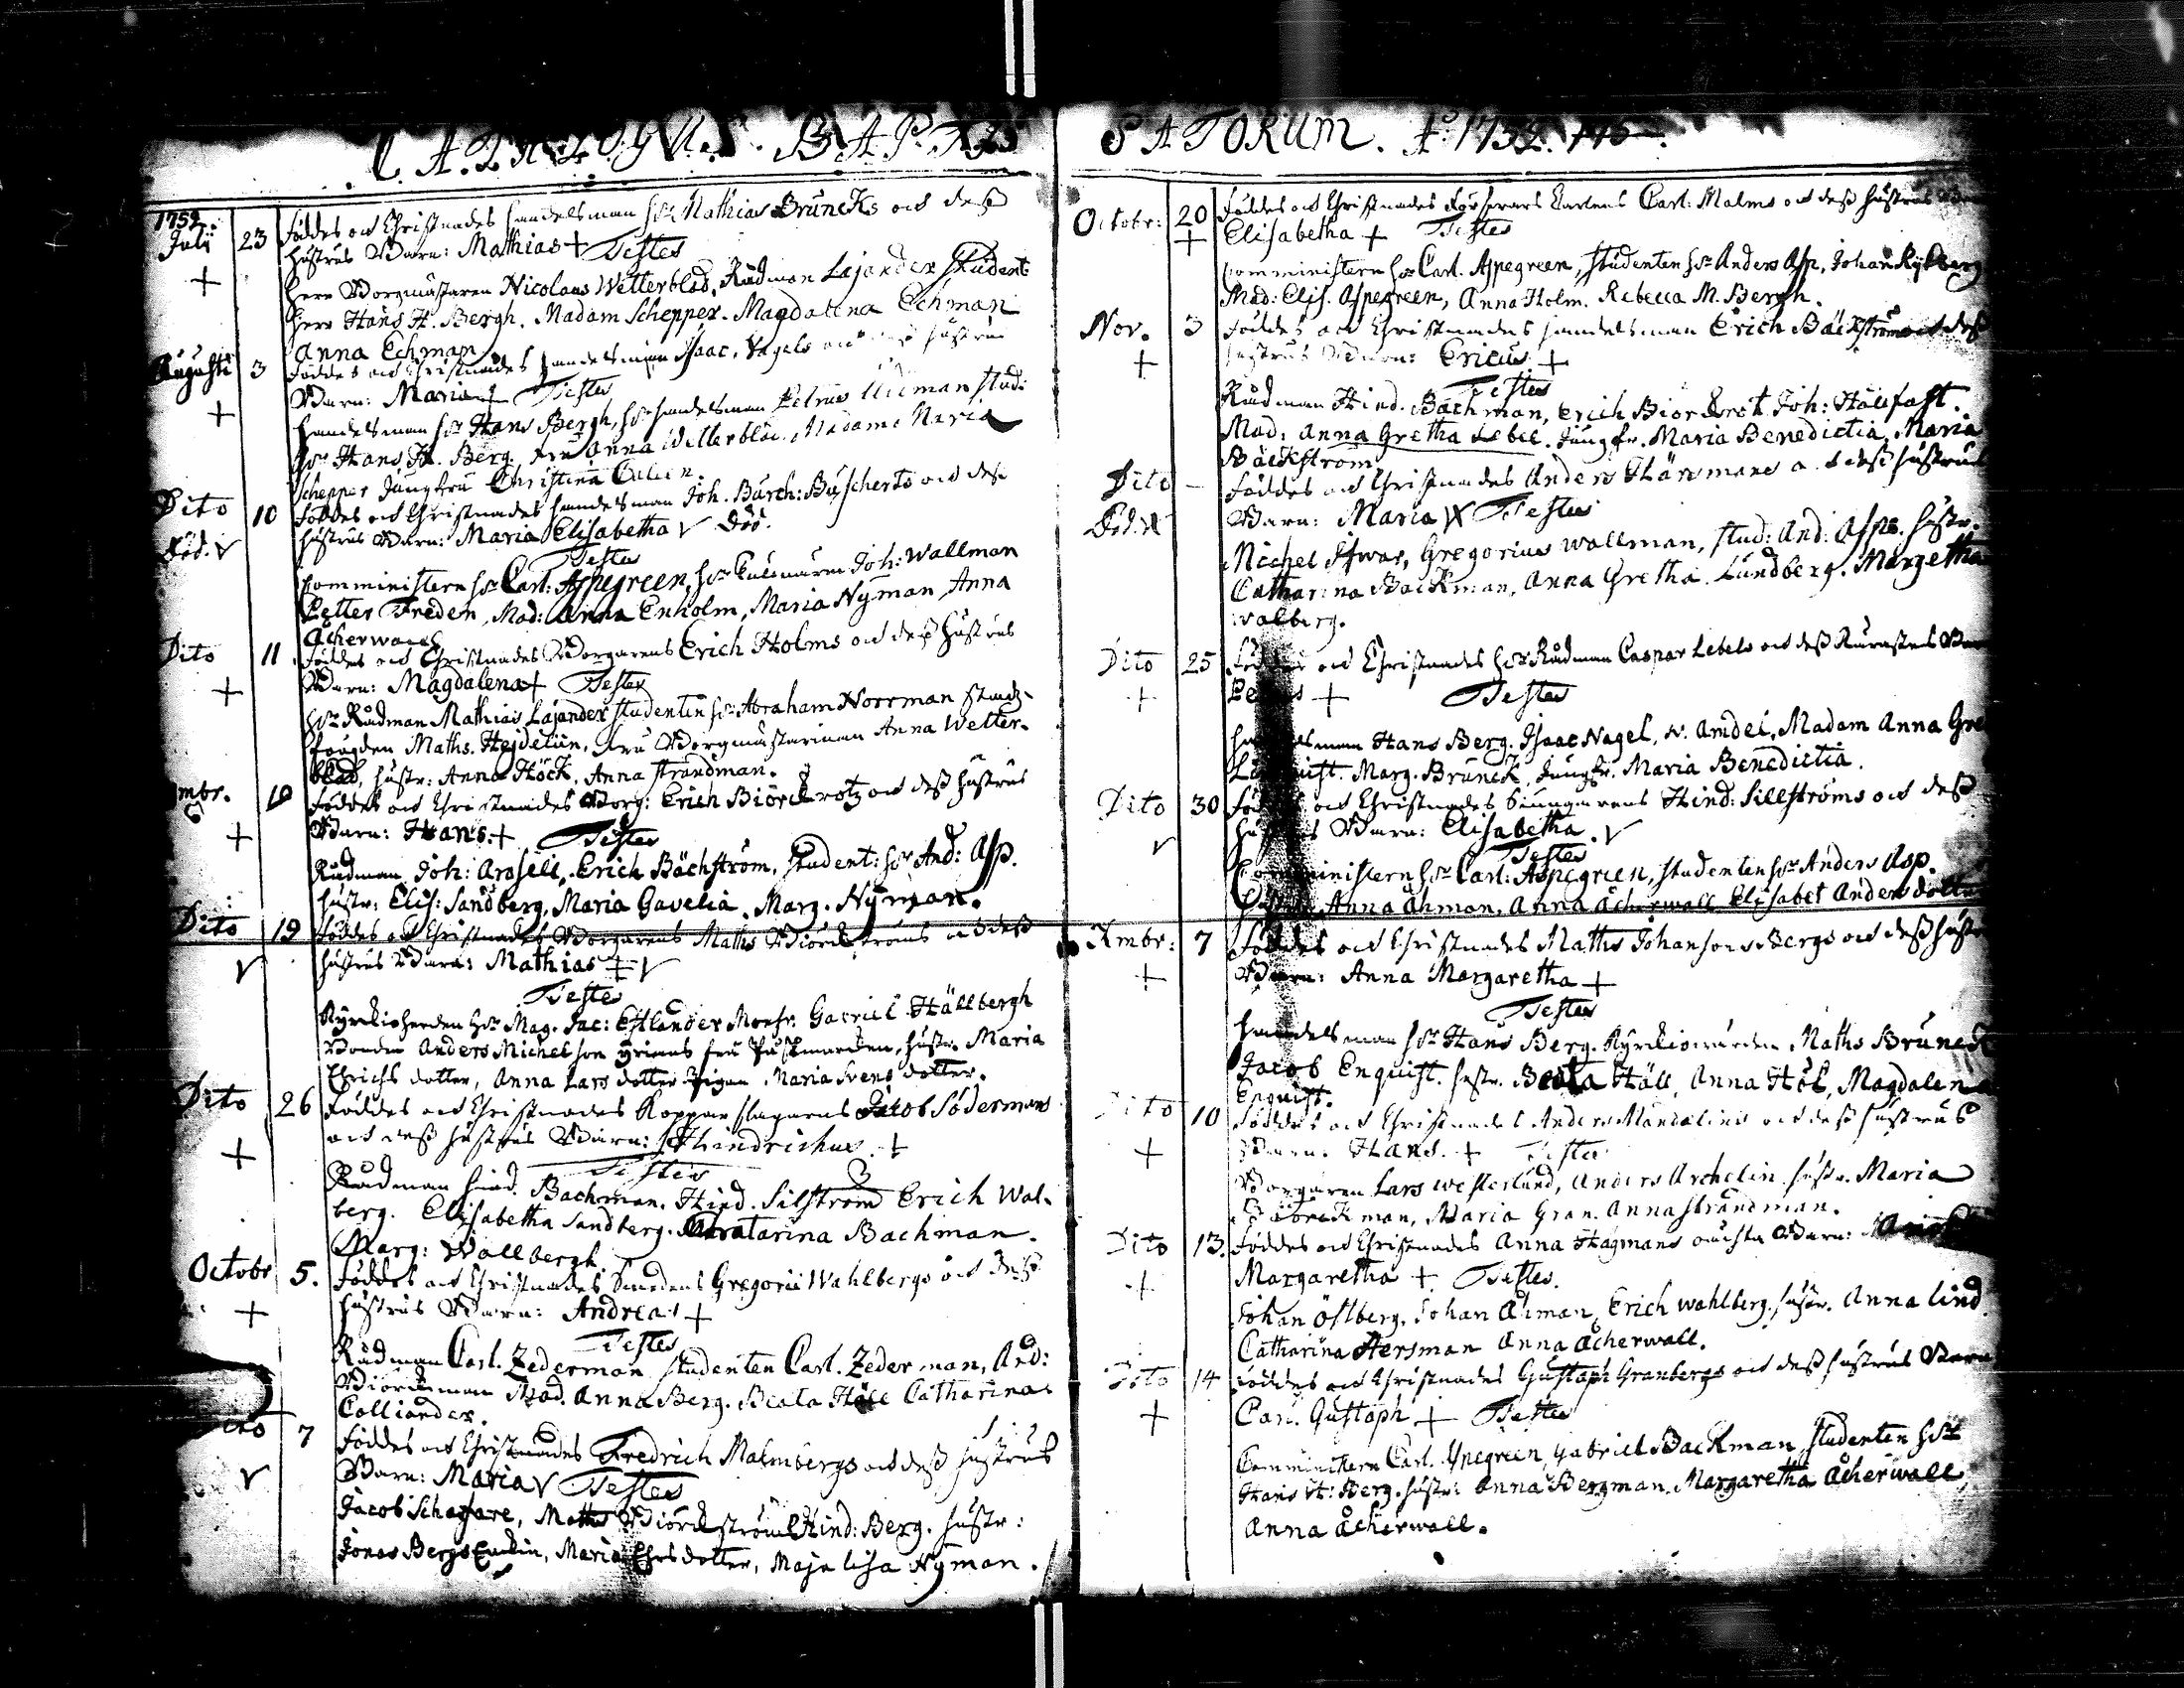 CATALOGUS. BAPTI
1752.
July 23 Föddes och Christnades handelsman Hr: Mathias Bruncks och dess
hustrus Barn: Mathias + Testes
+ Herr Borgmästaren Nicolaus Wetterblad, Rådman Lajander Student
Herr Hans H. Bergh. Madam Schepper. Magdalena Echman
Anna Echman
Augusti 3 Föddes och Christnades handelsman Isaac Nagels och dess hustrus
+ Barn: Maria + Testes
Handelsman Hr Hans Bergh, Hr handelsman Petrus Udman Stud:
Hr Hans H. Berg. Fru Anna Wetterblad. Madame Maria
Schepper Jungfru Christina
Dito 10 Föddes och Christnades handelsman Joh. Barth: Buscherts och dess
Död. V hustrus Barn: Maria Elisabetha V Död.
Testes
Comministern Hr Carl: Aspegreen, Hr Joh: Wallman
Petter Freden, Mad: Anna Enholm, Maria Nyman Anna
Acherwall
Dito 11 Föddes och Christnades Borgarens Erich Holms och dess hustrus
+ Barn: Magdalena + Testes
Hr Rådman Mathias Lajander Studenten Hr Abraham Norrman Stads-
fougden Maths. Hejdelin, Fru Borgmästarinnan Anna Wetter-
blad, hustr: Anna Höck, Anna Strandman.
mbr. 10 Föddes och Christnades Borg: Erich Biörckrotz och dess hustrus
+ Barn: Hans. + Testes
Rådman Joh: Aroselt, Erich Bäckström, Student: Hr And: Asp.
hustr: Elis: Sandberg, Maria Gavelia. Marg. Nyman.
Dito 19 Föddes och Christnades Borgarens Maths Biörckströms och dess
V hustrus Barn: Mathias + V
Testes
Kyrckioherden Hr Mag. Jac: Estlander Monsr. Gabriel Hällbergh
Bonden Anders Michelson hustr. Maria
Erichs dotter, Anna Lars dotter Pigan Maria Svens dotter.
Dito 26 Föddes och Christnades Kopparslagarens Jacob Södermans
+ och dess hustrus Barn: Hindrichus. +
Testes
Rådman Hind. Bachman. Hind. Silström Erich Wal-
berg. Elisabetha Sandberg. Catarina Bachman.
Marg: Wallbergh.
Octobr 5. Föddes och Christnades Smedens Gregorii Wahlbergs och dess
+ hustrus Barn: Andreas +
Testes
Rådman Carl. Zederman Studenten Carl. Zederman, And:
Biörckman Mad. Anna Berg. Beata Häll Catharina
Colliander.
Dito 7 Föddes och Christnades Fredrich Malmbergs och dess hustrus
V Barn: Maria V Testes
Jacob Schafare, Maths Biörckström Hind: Berg. hustr:
Jonas Bergs Enckin, Maria Ersdotter, Maja Lisa Nyman.
SATORUM. Ao: 1752.
Octobr: 20 Föddes och Christnades Carl: Malms och dess hustrus
+ Elisabetha + Testes
Comministern Hr Carl. Aspegreen, Studenten Hr Anders Asp, Johan Rydberg
Mad: Elis. Aspegreen, Anna Holm. Rebecca M. Bergh.
Nov. 3 Föddes och Christnades handelsman Erich Bäckströms och dess
+ hustrus Barn: Ericus +
Testes
Rådman Hind. Bachman, Erich Biörckrot Joh: Hällfast.
Mad: Anna Gretha Lebel. Jungfr. Maria Benedictia, Maria
Bäckström
Dito - Föddes och Christnades Anders Härsmans och dess hustrus
Död. Barn: Maria Testes
Michel Gregorius Wallman, Stud: And: Asp. hustr.
Catharina Backman, Anna Gretha Lundberg. Margetha
Walberg.
Dito 25 Föddes och Christnades Hr Rådman Caspar Lebels och dess
+ Petrus + Testes
Handelsman Hans Berg. Isaac Nagel, N. Amdel, Madam Anna Gre
Marg. Brunck, Jungfr. Maria Benedictia.
Dito 30 Föddes och Christnades Hind: Sillströms och dess
V hustrus Barn: Elisabetha. V
Testes
Comministern Hr Carl: Aspegreen, Studenten Hr Anders Asp.
hustr: Anna Åhman, Anna Åcherwall Elisabet Anders dotter
Xmbr: 7 Föddes och Christnades Maths Johansons Bergs och dess hustr
+ Barn: Anna Margaretha +
Testes
Handelsman Hr Hans Berg. Maths Brunck
Jacob Enquist. hustr. Beata Häll, Anna Höl, Magdalena
Enquist.
Dito 10 Föddes och Christnades Anders Mandelins och dess hustrus
+ Barn: Hans. + Testes
Borgaren Lars Westerlund, Anders Archelin hustr. Maria
Biörckman, Maria Gran. Anna Strandman.
Dito 13. Föddes och Christnades Anna Hagmans oächta Barn:
+ Margaretha + Testes.
Johan Östberg, Johan Åhman, Erich Wahlberg. hustr. Anna Lind
Catharina Hersman Anna Åcherwall.
Dito 14 Föddes och Christnades Gustaph Granbergs och dess hustrus Barn
+ Carl. Gustaph + Testes
Comministern Carl. Aspegreen, Gabriel Backman, Studenten Hr
Hans H: Berg. hustr: Anna Bergman. Margaretha Åcherwall
Anna Åcherwall.